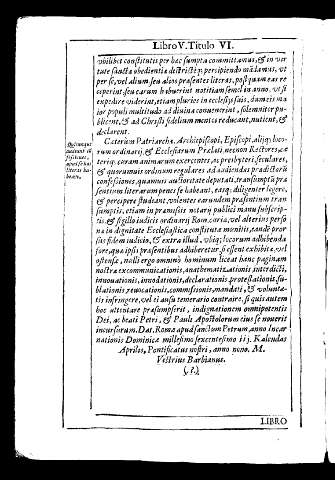 Libro V. Titulo VI.
vbilibet constitutis per hæc sumpta committimus, & in vir
tute sanctæ obedientiæ districtè præcipiendo mãdamus, vt
per se, vel alium seu alios præsentes literas, postquam eas re
ceperint seu earum habuerint notitiam semel in anno, vt si
expedire viderint, etiam pluries in ecclesijs suis, dum eis ma
ior populi multitudo ad diuina conuenerit, solemniter pu-
blicent, & ad Christi fidelium mentes reducant, nuncient, &
declarent.
Cæterùm Patriarchæ, Archiepiscopi, Episcopi, alijq; loco-
rum ordinarij, & Ecclesiarum Prælati, necnon Rectores, cæ
teriq; curam animarum exercentes, ac presbyteri, seculares,
& quorumuis ordinum regulares ad audiendas peccatorũ
confessiones, quauis auctoritate deputati, transumptũ præ
sentium literarum penes se habeant, easq; diligenter legere,
& percipere studeant, volentes earundem præsentium tran
sumptis, etiam in præmissis notarij publici manu subscrip-
tis, & sigillo iudicis ordinarij Rom. curiæ, vel alterius perso
næ in dignitate Ecclesiastica constitutæ munitis, eandẽ pror
sus fidem in iudicio, & extra illud, vbiq; locorum adhibenda
fore, quæ ipsis præsentibus adhiberetur, si essent exhibitæ, vel
ostensæ, nulli ergo omninò hominum liceat hanc paginam
nostræ excommunicationis, anathematizationis interdicti,
innouationis, innodationis, declarationis, protestationis, su-
blationis, reuocationis, commissionis, mandati, & volunta-
tis infringere, vel ei ausu temerario contraire. si quis autem
hoc attentare præsumpserit, indignationem omnipotentis
Dei, ac beati Petri, & Pauli Apostolorum eius se nouerit
incursurum. Dat. Romæ apud sanctum Petrum, anno Incar
nationis Dominicæ millesimo sexcentesimo iij. Kalendas
Aprilis, Pontificatus nostri, anno nono. M.
Vestrius Barbianus.
LIBRO